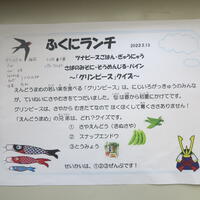 ふくにランチ
2022.5.13
ツナピースごはん・ぎゅうにゅう
さばのみそに・とうめんじる・パイン
～「グリンピース」クイズ～
えんどうまめの若い実を食べる「グリンピース」は、にじいろがっきゅうのみんな
が、ていねいにさやむきをしてつだいました。なは春から初夏にかけてです。
グリンピースは、さやからむきたてなのでほくほくして青くささありません!
「えんどうまめ」の兄弟は、どれ?クイズです。
① さやえんどう(きぬさや)
② スナップエンドウ
③とうみょう
せいかいは、①②③ぜんぶです!